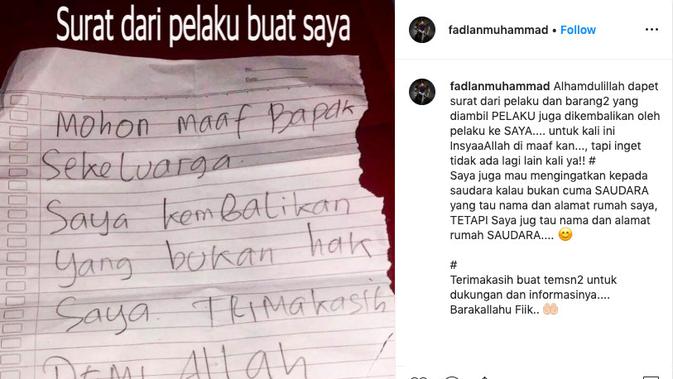 Surat dari pelaku buat saya
No.
Date
Mohon maaf Bapak
Sekeluarga.
Saya kemBalikan
yang bukan hak
Saya. TRIMAKASIH
DEMI Allah
fadlanmuhammad • Follow
fadlanmuhammad Alhamdulillah dapet
surat dari pelaku dan barang2 yang
diambil PELAKU juga dikembalikan oleh
pelaku ke SAYA.... untuk kali ini
InsyaaAllah di maaf kan..., tapi inget
tidak ada lagi lain kali ya!! #
Saya juga mau mengingatkan kepada
saudara kalau bukan cuma SAUDARA
yang tau nama dan alamat rumah saya,
TETAPI Saya jug tau nama dan alamat
rumah SAUDARA.... 😊
#
Terimakasih buat temsn2 untuk
dukungan dan informasinya....
Barakallahu Fiik.. 🤲🏻